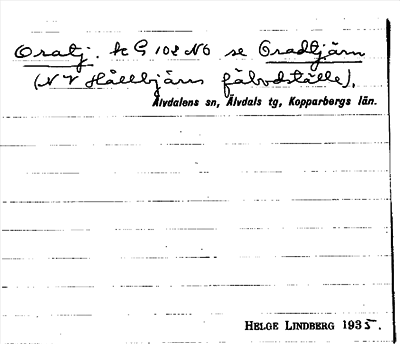 Oratj. tc G 108 NO se Oradtjärn
(NV Hålltjärns fäbodställe).
Älvdalens sn, Älvdals tg, Kopparbergs län.
HELGE LINDBERG 1935.